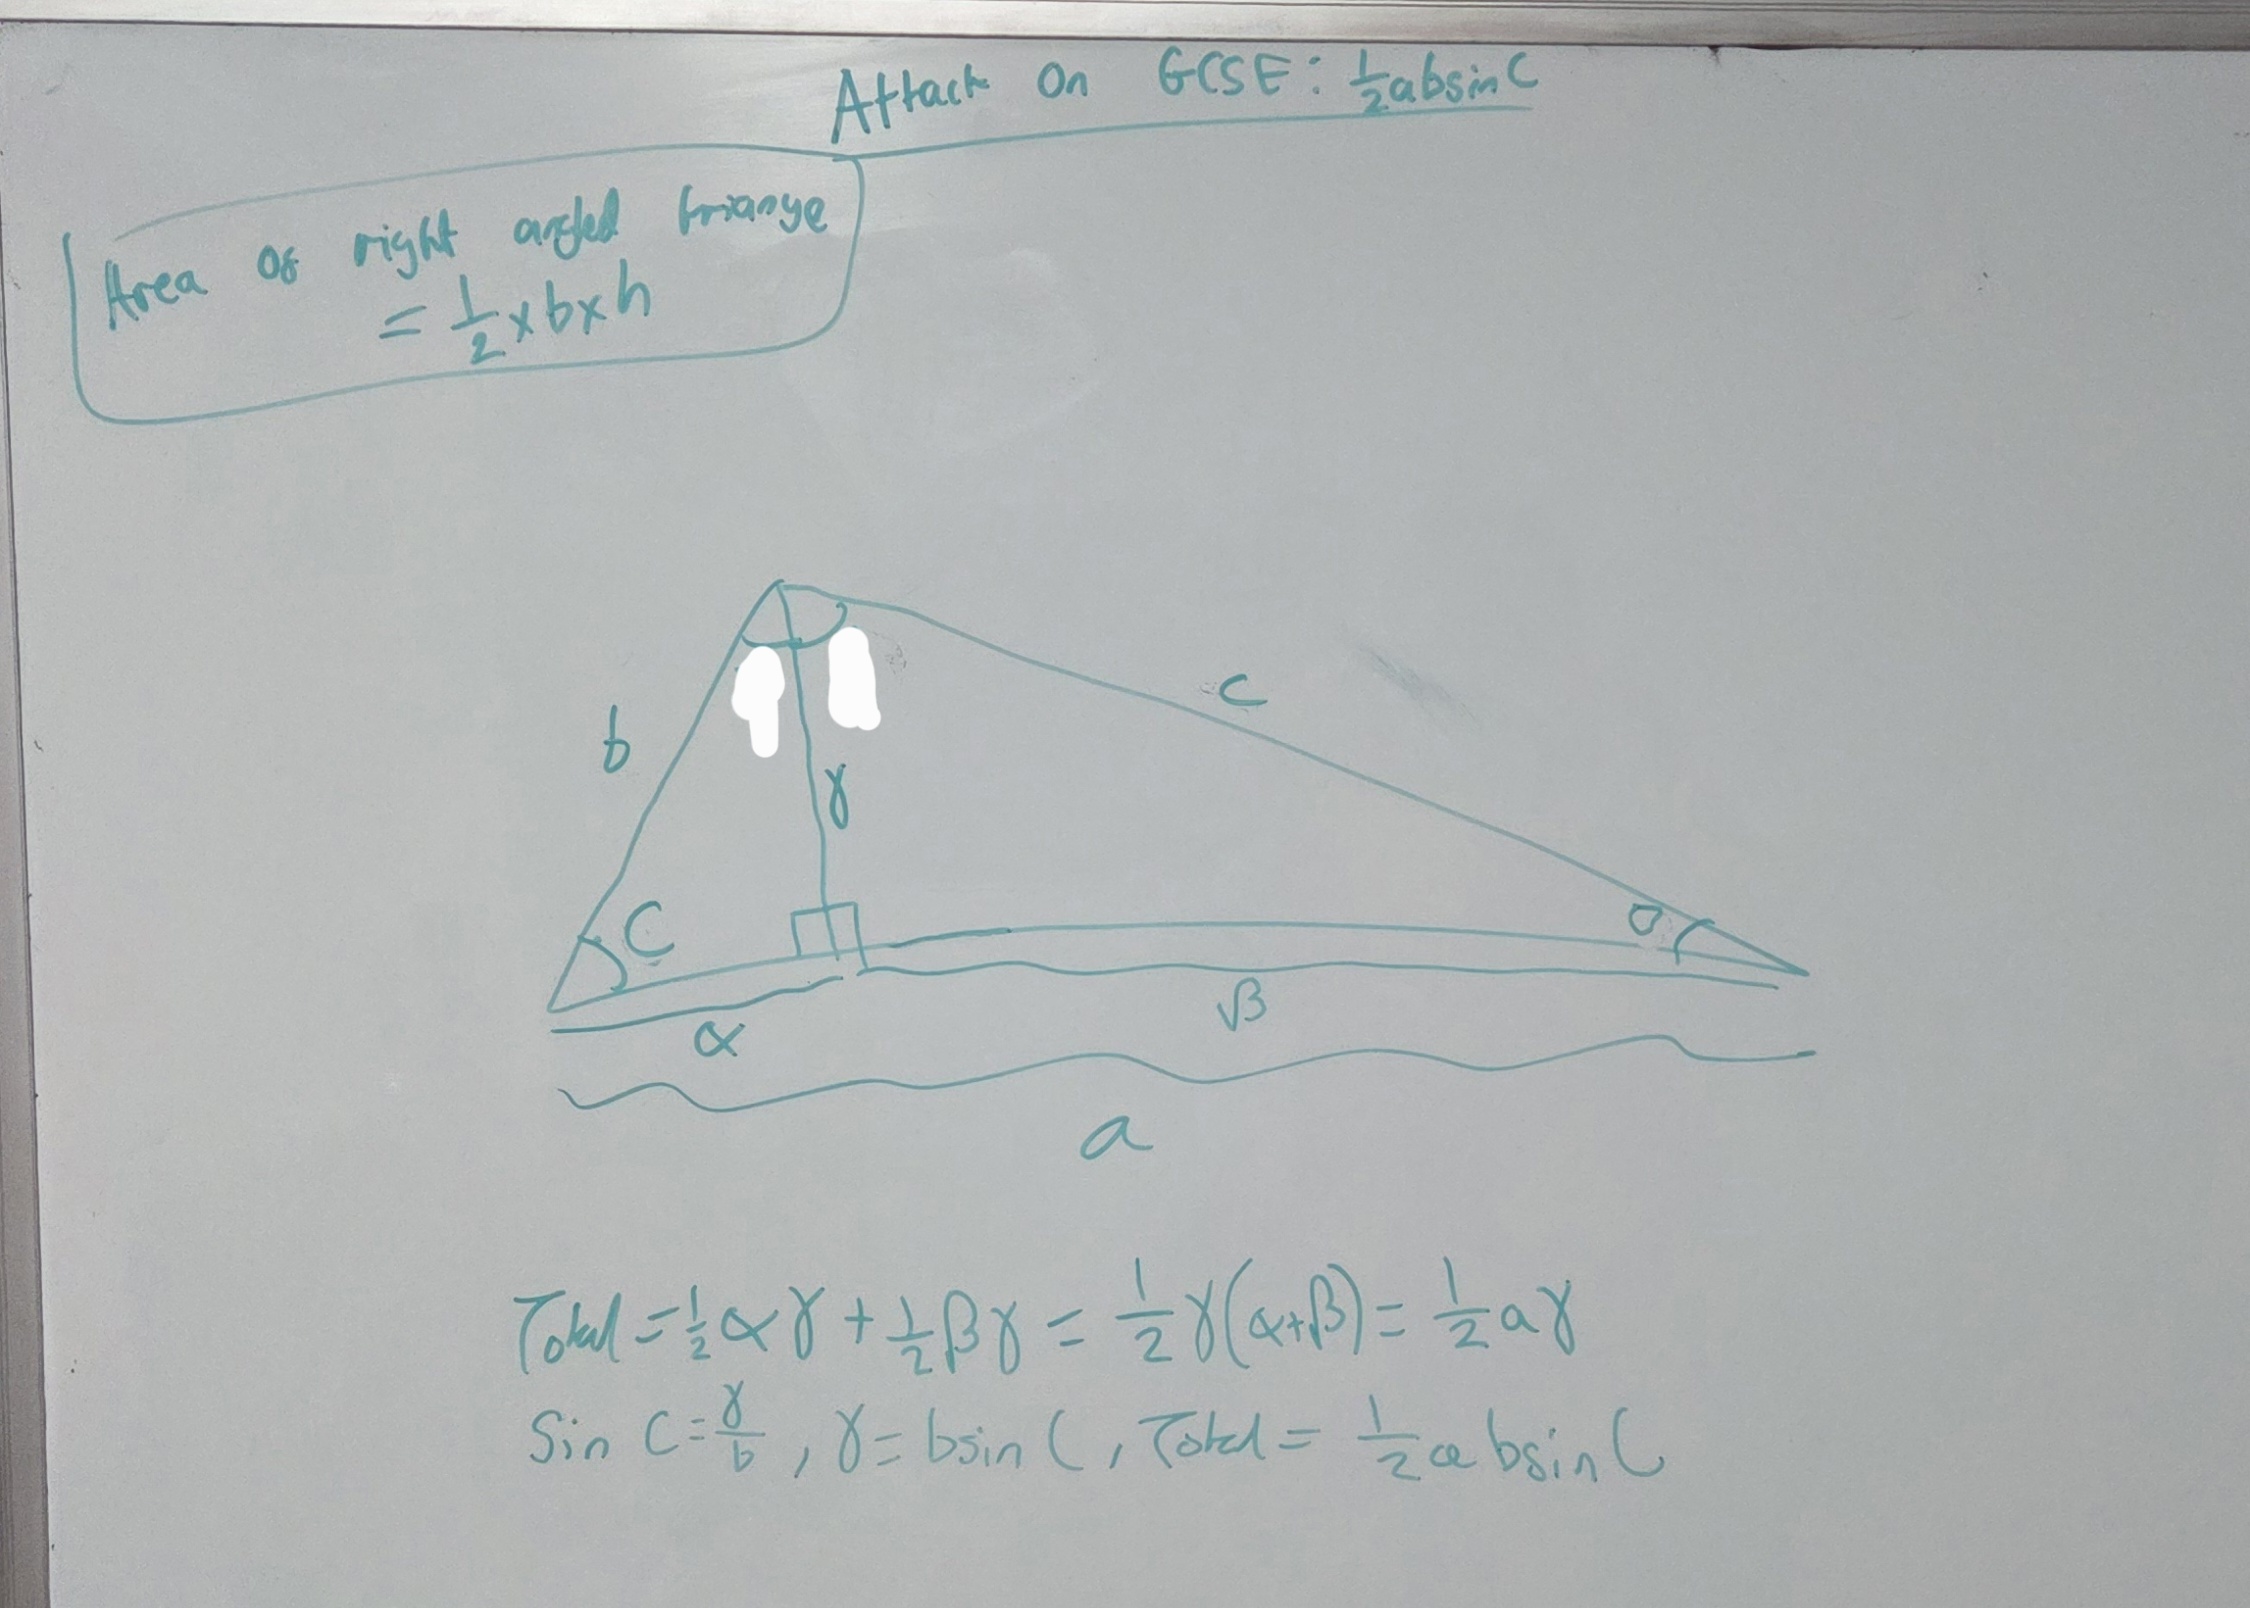 Attack On GCSE: ½absinC
Area of right angled triangle
= ½ x b x h
b
c
γ
C
θ
α
β
a
Total = ½αγ + ½βγ = ½γ(α+β) = ½aγ
Sin C = γ/b , γ = bsin C , Total = ½absin C